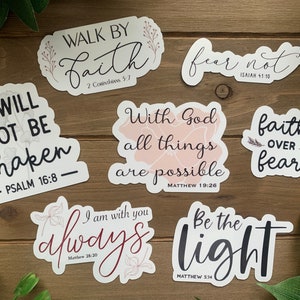 WALK BY
Faith
2 Corinthians 5:7
fear not
ISAIAH 41:10
WILL
NOT BE
shaken
PSALM 16:8
With God
all things
are possible
MATTHEW 19:26
faith
OVER
fear
I am with you
always
Matthew 28:20
Be the
light
MATTHEW 5:14